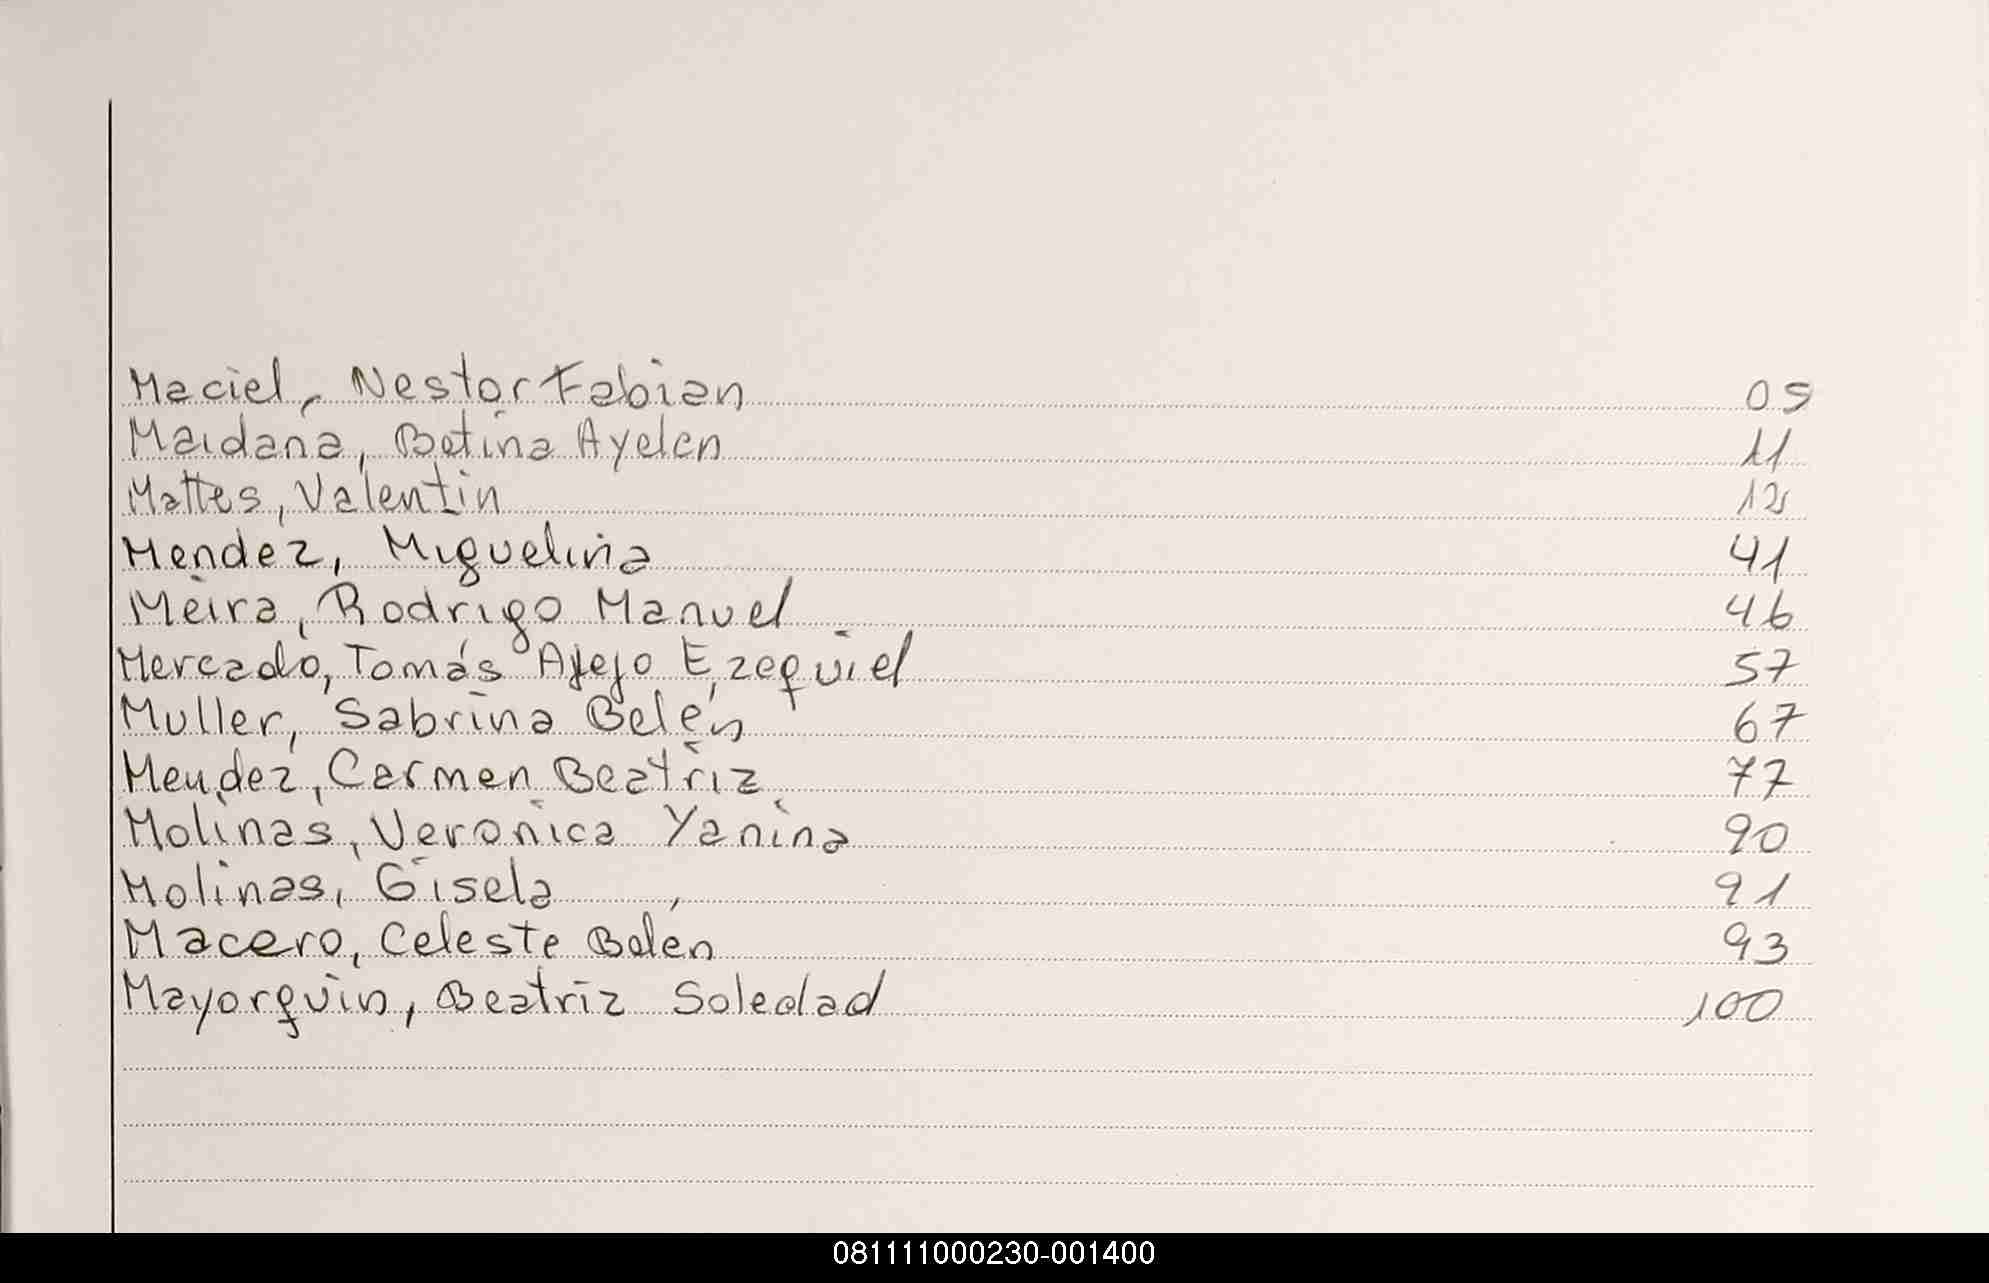 Maciel, Nestor Fabian 09
Maidana, Betina Ayelen 11
Mattes, Valentin 12
Mendez, Miguelina 41
Meira, Rodrigo Manuel 46
Mercado, Tomás Alejo Ezequiel 57
Muller, Sabrina Belén 67
Mendez, Carmen Beatriz 77
Molinas, Veronica Yanina 90
Molinas, Gisela 91
Macero, Celeste Belen 93
Mayorquin, Beatriz Soledad 100
081111000230-001400